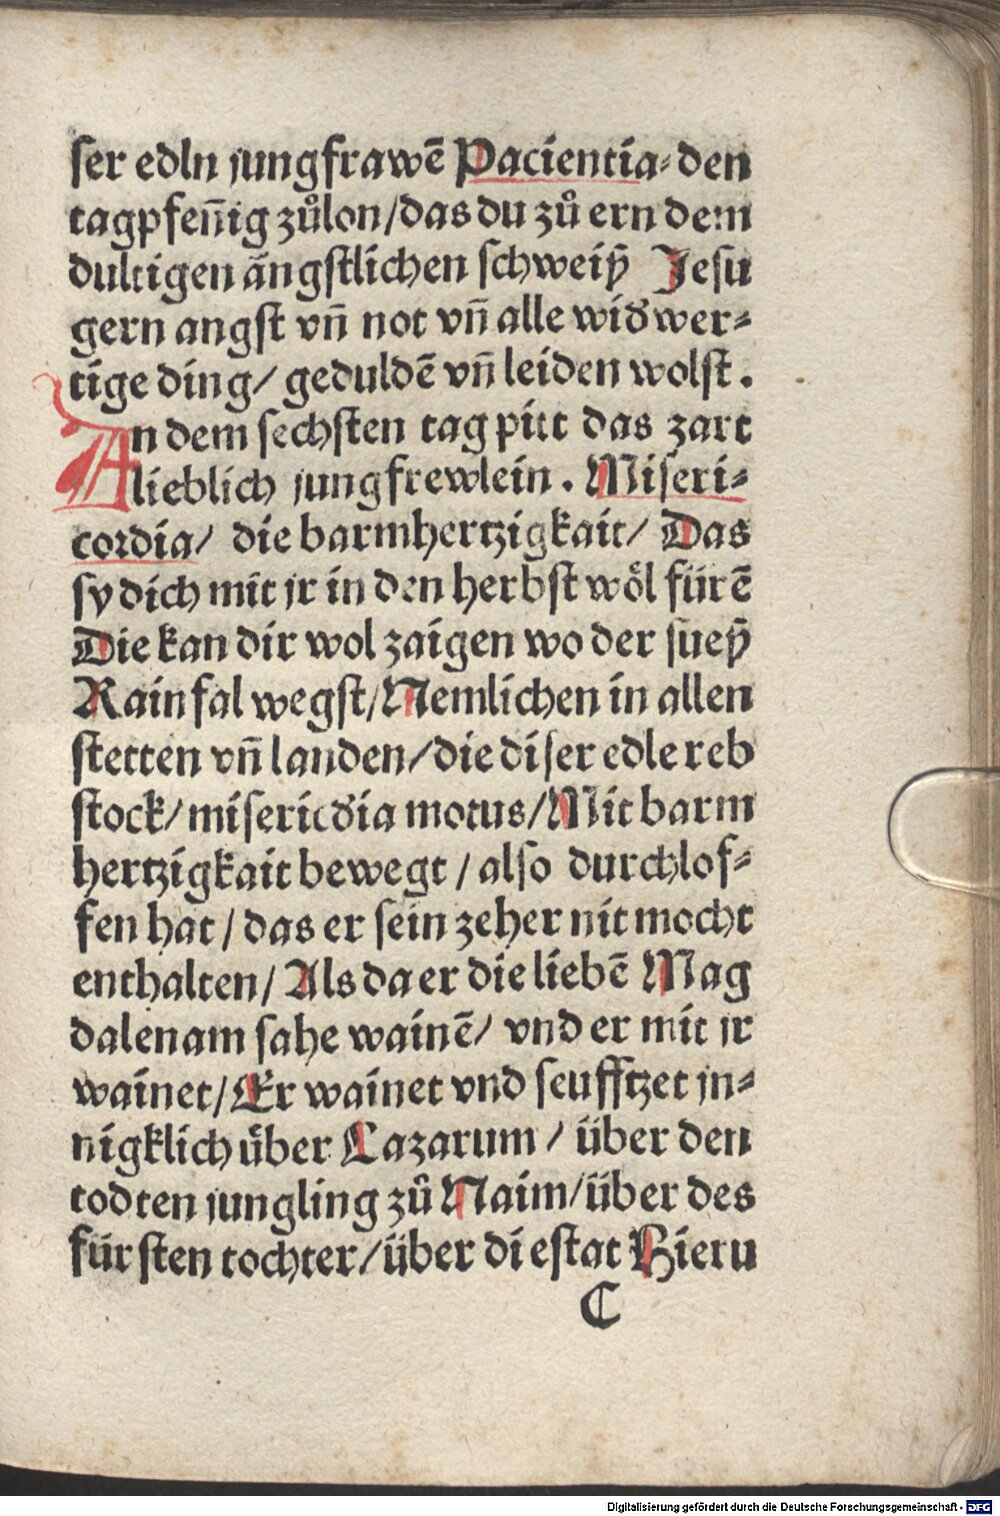 ser edln jungfrawē Pacientia⸗den
tagpfen̄ig zůlon/das du zů ern dem
dultigen ångstlichen schweiß Jesu
gern angst vn̄ not vn̄ alle widwer⸗
tige ding/ geduldē vn̄ leiden wolst.
An dem sechsten tag pitt das zart
lieblich jungfrewlein. Miseri⸗
cordia/ die barmhertzigkait/ Das
sy dich mit jr in den herbst wöl fürē
Die kan dir wol zaigen wo der sueß
Rainfal wegst/Nemlichen in allen
stetten vn̄ landen/die diser edle reb
stock/misericdia motus/Mit barm
hertzigkait bewegt/also durchlof⸗
fen hat/das er sein zeher nit mocht
enthalten/Als da er die liebē Mag
dalenam sahe wainē/ vnd er mit jr
wainet/Er wainet vnd seufftzet jn⸗
nigklich über Lazarum/ über den
todten jungling zů Naim/über des
fürsten tochter/über di estat Hieru
C
Digitalisierung gefördert durch die Deutsche Forschungsgemeinschaft - DFG